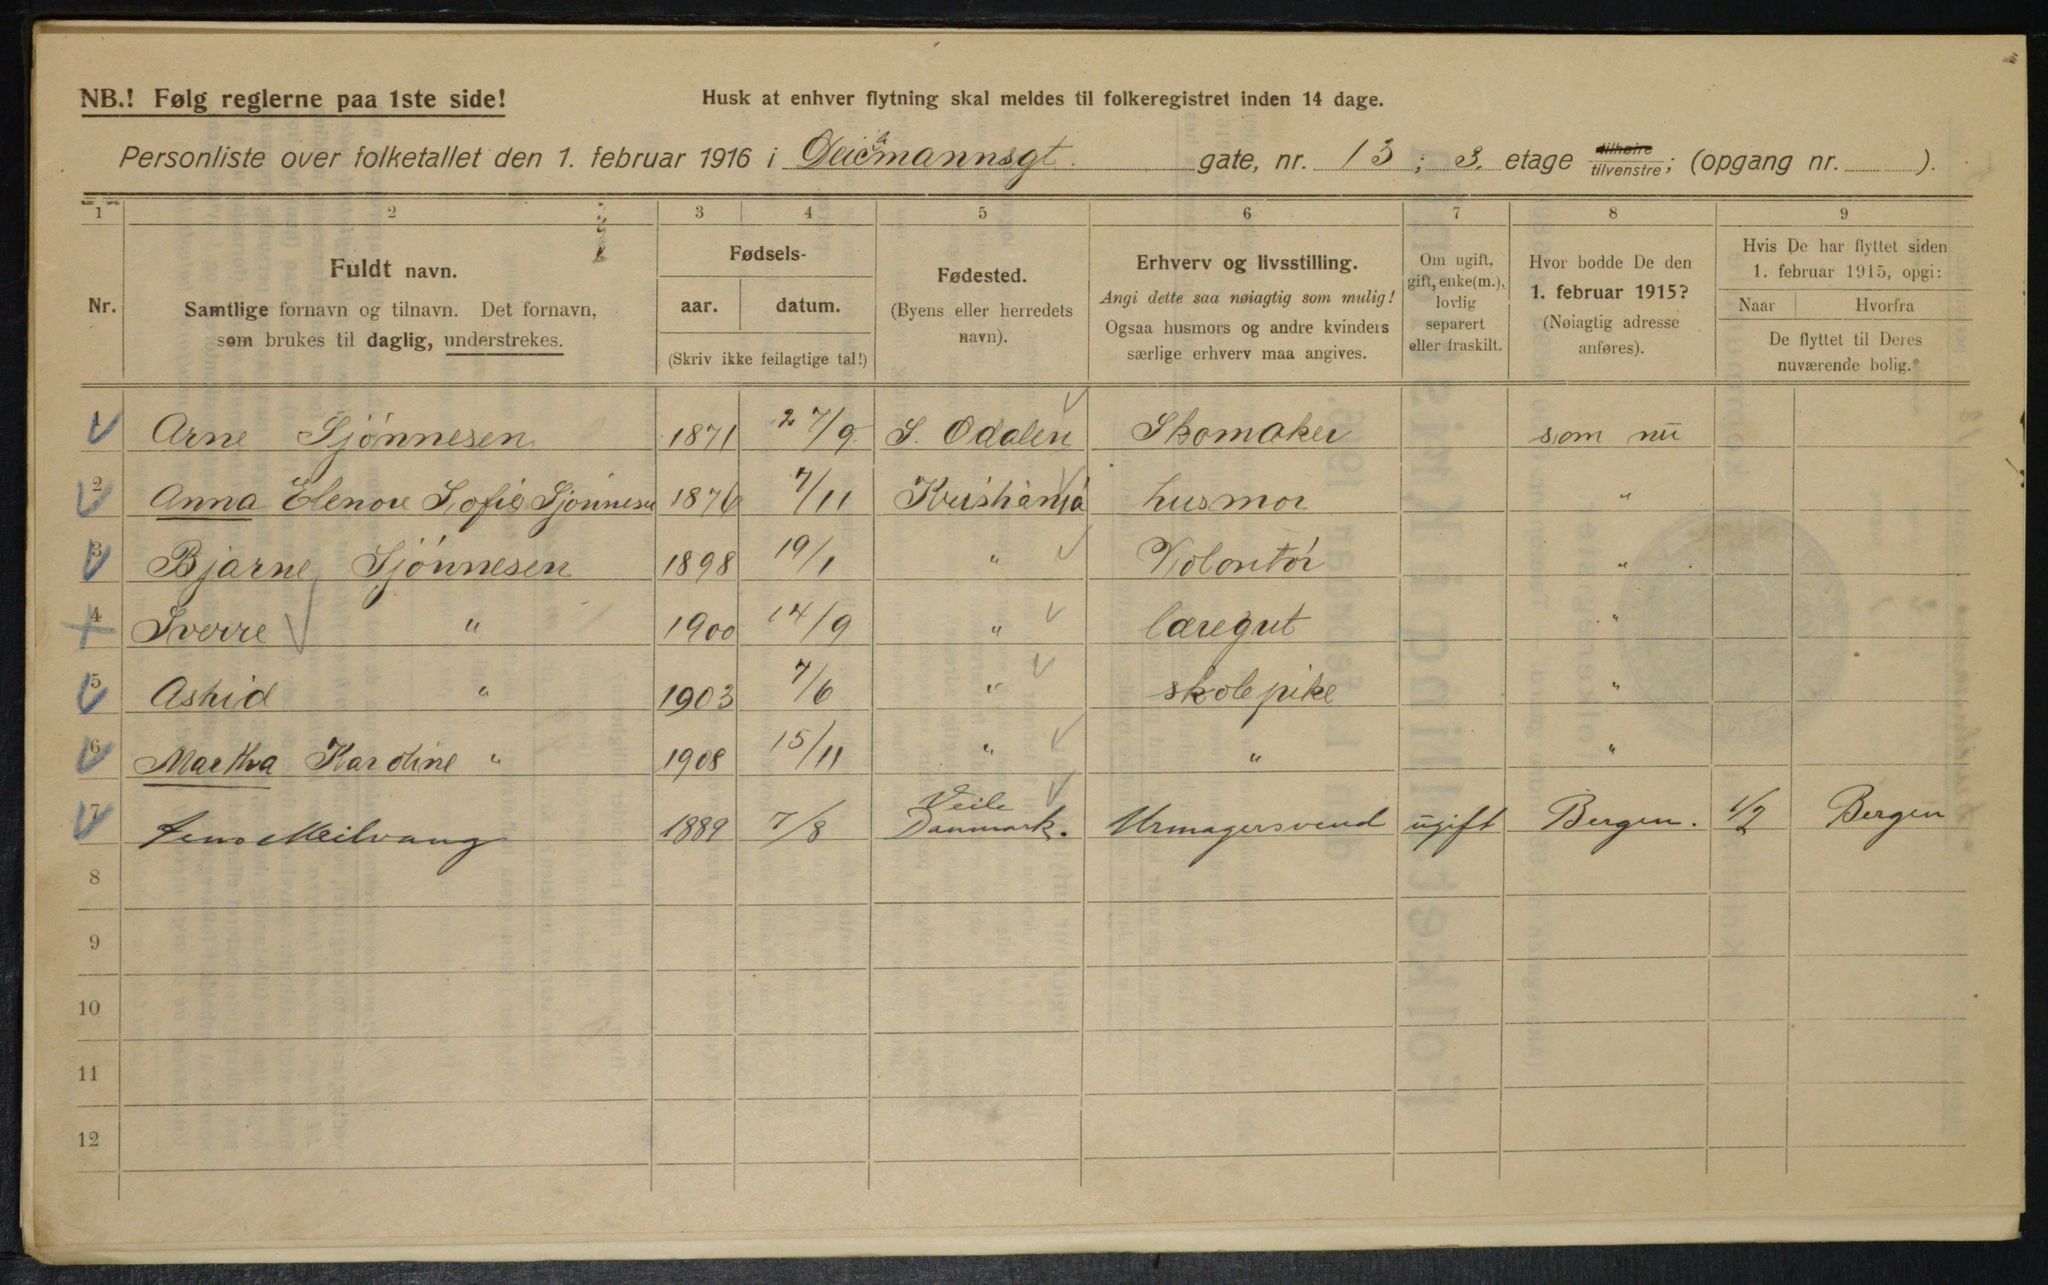 NB.! Følg reglerne paa 1ste side!
Husk at enhver flytning skal meldes til folkeregistret inden 14 dage.
Personliste over folketallet den 1. februar 1916 i Deichmannsgt. gate, nr. 13; 3. etage tilhøire/tilvenstre; (opgang nr. ).
1 2 3 4 5 6 7 8 9
Nr.
Fuldt navn.
Samtlige fornavn og tilnavn. Det fornavn,
som brukes til daglig, understrekes.
Fødsels-
aar. datum.
(Skriv ikke feilagtige tal!)
Fødested.
(Byens eller herredets
navn).
Erhverv og livsstilling.
Angi dette saa nøiagtig som mulig!
Ogsaa husmors og andre kvinders
særlige erhverv maa angives.
Om ugift,
gift, enke(m.),
lovlig
separert
eller fraskilt.
Hvor bodde De den
1. februar 1915?
(Nøiagtig adresse
anføres).
Hvis De har flyttet siden
1. februar 1915, opgi:
Naar Hvorfra
De flyttet til Deres
nuværende bolig.
1 Arne Sjønnesen 1871 27/9 S. Odalen Skomaker som nu
2 Anna Elenore Sofie Sjønnesen 1876 7/11 Kristiania husmor "
3 Bjarne Sjønnesen 1898 19/1 " Volontør "
4 Sverre " 1900 14/9 " læregut "
5 Astrid " 1903 7/6 " skolepike "
6 Martha Karoline " 1908 15/11 " " "
7 Jens Meilvang 1889 7/8 Veile Danmark. Urmagersvend ugift Bergen. 1/2 Bergen
8
9
10
11
12